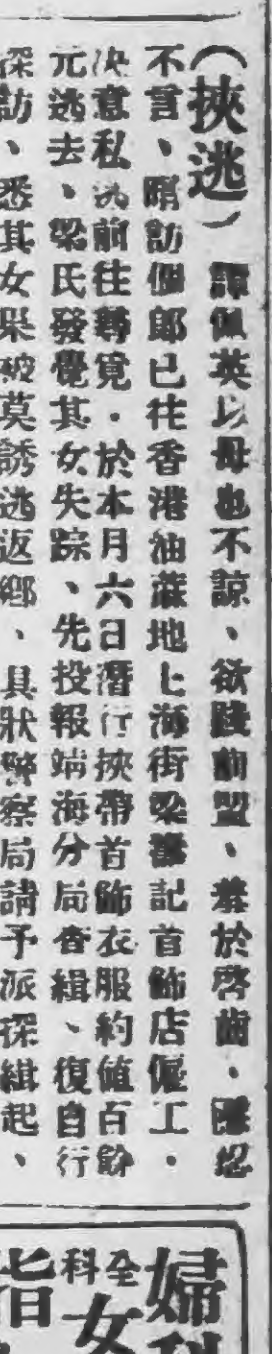 (挾逃)　譚佩英以母也不諒、欲踐前盟、羞於啓齒、隱忍
不言、暗訪個郎已往香港油蔴地上海街梁記首飾店僱工。
决意私逃前往尋覓。於本月六日潛行挾帶首飾衣服約値百餘
元逃去、梁氏發覺其女失踪、先投報端海分局查緝、復自行
深訪、悉其女果被莫誘逃返鄉、具狀警察局請予派探緝起、
婦科
全科
女
指